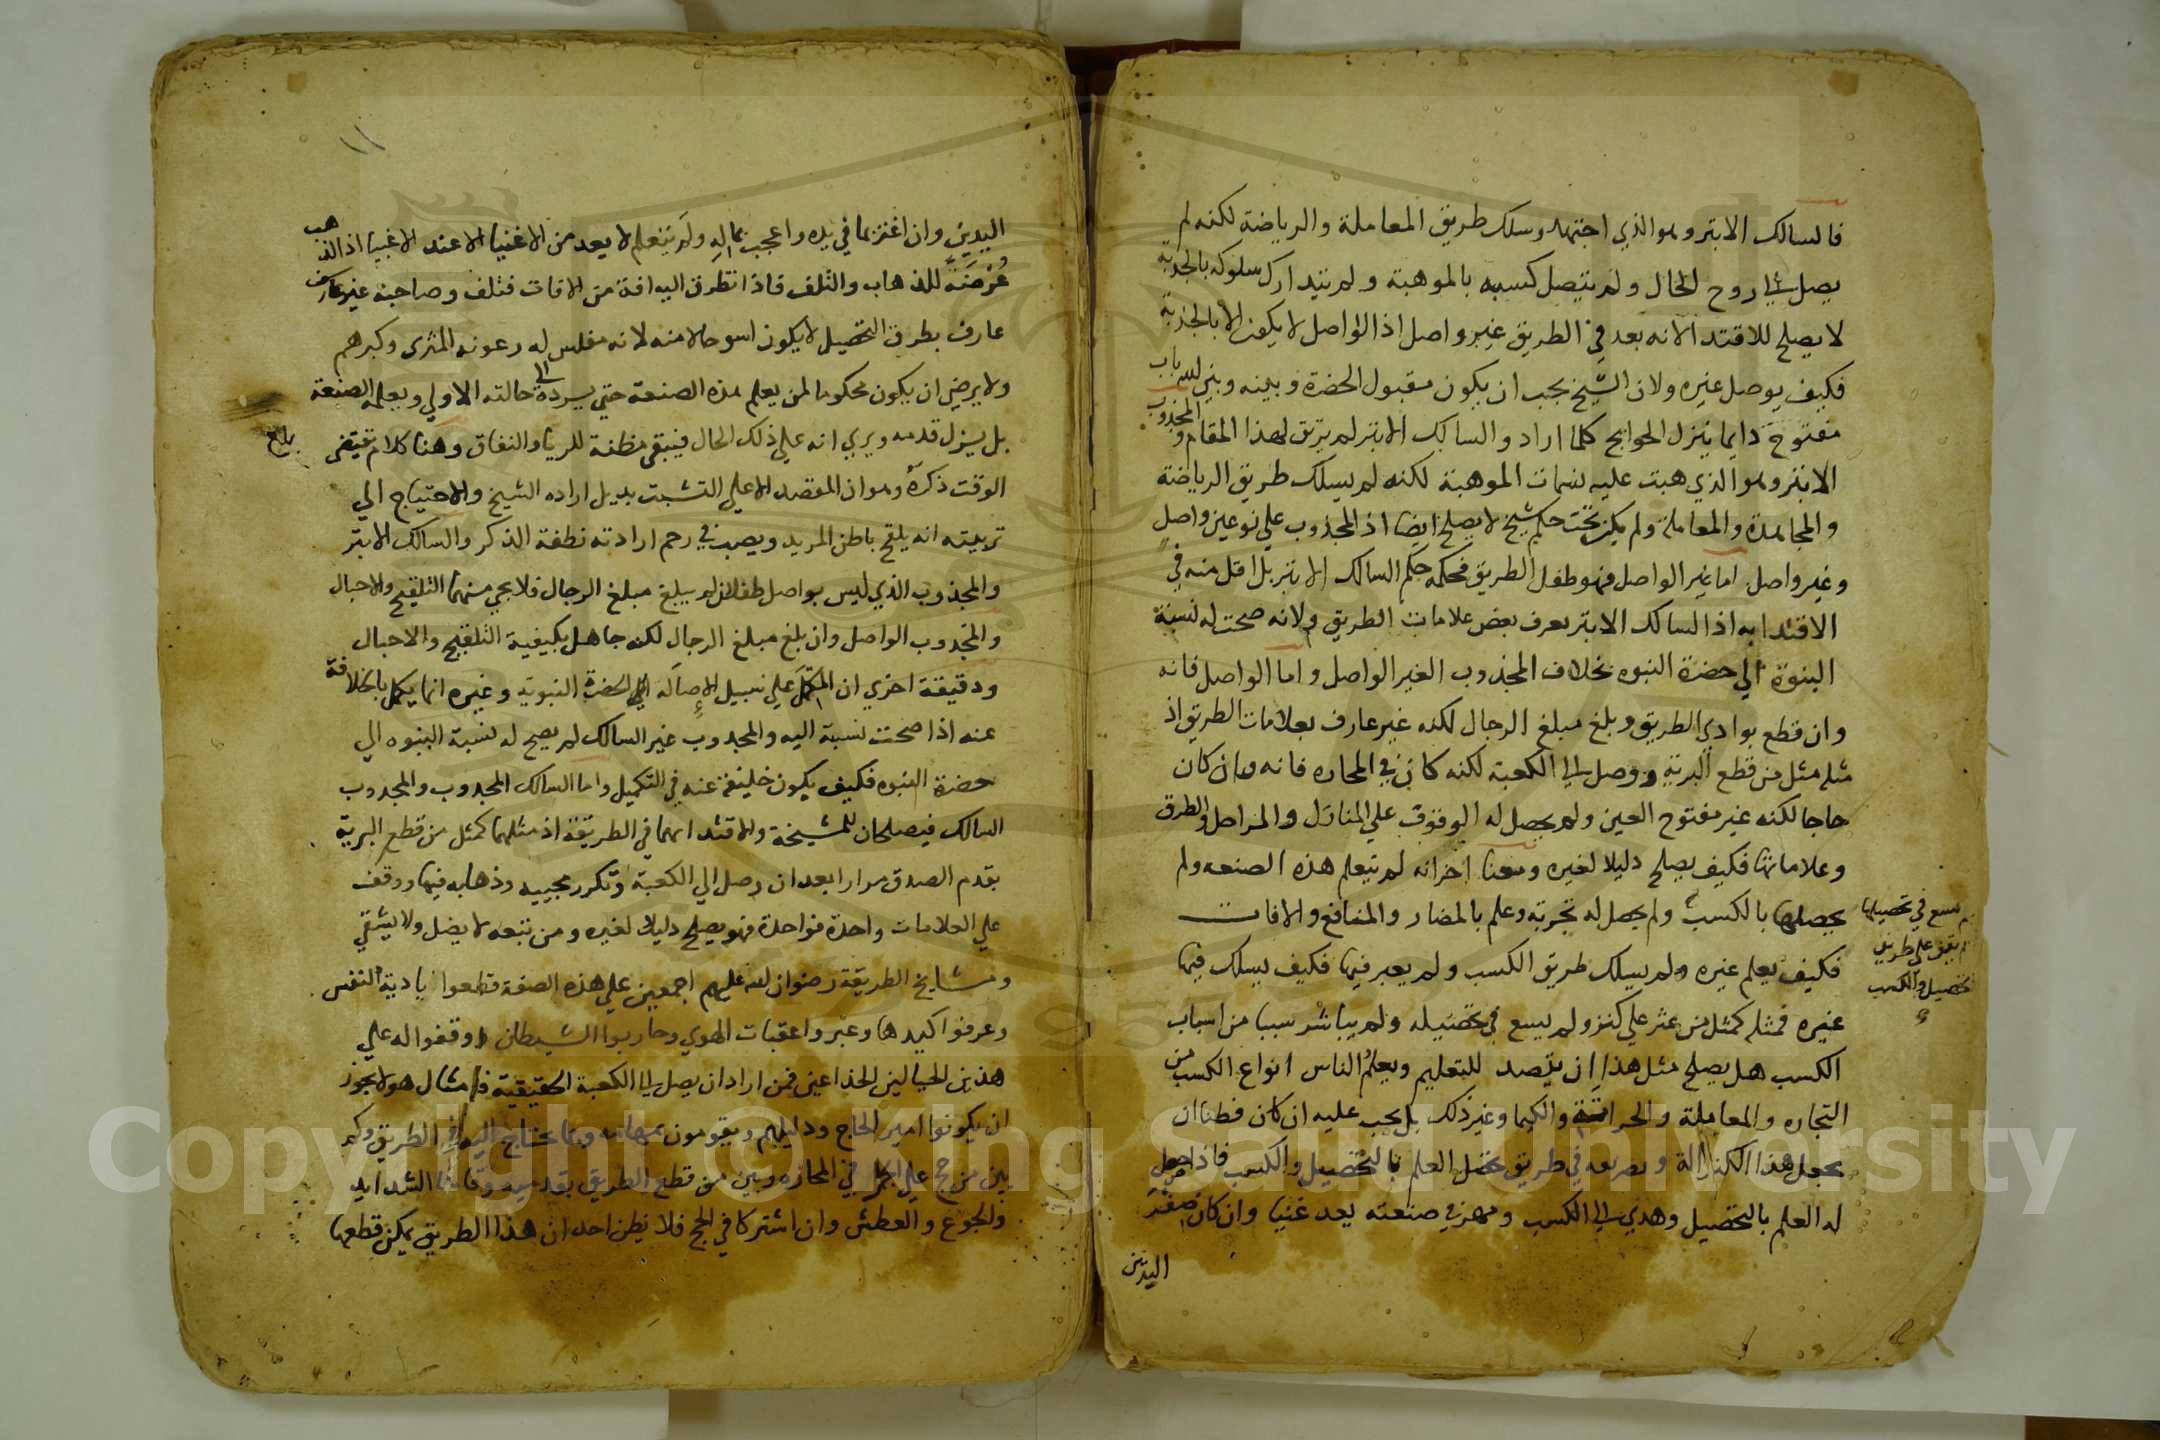 فالسالك الابتر وهو الذي اجتهد وسلك طريق المعاملة والرياضة لكنه لم
يصل الي روح الحال ولم يتصل كسبه بالموهبة ولم يتدارك سلوكه بالجذبة
لا يصلح للاقتدا لانه بعد في الطريق غير واصل اذ الواصل لا يكون الا بالجذبة
فكيف يوصل غيره ولان الشيخ يجب ان يكون مقبول الحضرة وبينه وبين الله باب
مفتوح دايما تنزل الحوايج كلما اراد والسالك الابتر لم يرتق لهذا المقام والمجذوب
الابتر وهو الذي هبت عليه نسمات الموهبة لكنه لم يسلك طريق الرياضة
والمجاهدة والمعاملة ولم يكن تحت حكم شيخ لا يصلح ايضا اذ المجذوب علي نوعين واصل
وغير واصل اما غير الواصل فهو طفل الطريق فحكمه حكم السالك الابتر بل اقل منه في
الاقتدا به اذ السالك الابتر يعرف بعض علامات الطريق ولانه صحت له نسبة
البنوة الي حضرة النبوه بخلاف المجذوب الغير الواصل واما الواصل فانه
وان قطع بوادي الطريق وبلغ مبلغ الرجال لكنه غير عارف بعلامات الطريق اذ
مثله مثل من قطع البرية ووصل الي الكعبة لكنه كان في المحاره فانه وان كان
حاجا لكنه غير مفتوح العين ولم يحصل له الوقوف علي المنازل والمراحل والطرق
وعلاماتها فكيف يصلح دليلا لغيره ومعنا اخر انه لم يتعلم هذه الصنعه ولم
يحصلها بالكسب ولم يحصل له تجربة وعلم بالمضار والمنافع والافات
فكيف يعلم غيره ولم يسلك طريق الكسب ولم يعبر فيها فكيف يسلك فيها
غيره فمثله كمثل من عثر علي كنز ولم يسع في تحصيله ولم يباشر سببا من اسباب
الكسب هل يصلح مثل هذا ان يتصد للتعليم ويعلم الناس انواع الكسب من
التجاره والمعاملة والحراثة والكيميا وغير ذلك بل يجب عليه ان كان فطنا ان
يجعل هذا الكنز الة ويصرفه في طريق تحصل العلم بالتحصيل والكسب فاذا حصل
له العلم بالتحصيل وهدي الي الكسب ومهر في صنعته يعد غنيا وان كان صفر
اليدين
لم يسع في تحصيلها
لم يقف علي طريق
تحصيل والكسب
١١
اليدين وان اغتر بما في يده واعجب بماله ولم يتعلم لا يعد من الاغنيا الا عند الاغبيا اذ الذهب
عرضة للذهاب والتلف فاذا تطرق اليه افة من الافات فتلف وصاحبه غير عارف
عارف بطرق التحصيل لا يكون اسو حالا منه لانه مفلس له رعونه المثرى وكبرهم
ولا يرضي ان يكون محكوما لمن يعلم هذه الصنعة حتي يرده الي حالته الاولي ويعلمه الصنعة
بل يزل قدمه ويري انه علي ذلك الحال فيبقى مظنة للريا والنفاق وهنا كلام يقتضى
بلغ
الوقت ذكره وهو ان المقصد الاعلي التشبث بذيل اراده الشيخ والاحتياج الي
تربيته انه يلقح باطن المريد ويصب في رحم ارادته نطفة الذكر والسالك الابتر
والمجذوب الذي ليس بواصل طفلان لم يبلغ مبلغ الرجال فلا يجي منهما التلقيح والاحبال
والمجذوب الواصل وان بلغ مبلغ الرجال لكنه جاهل بكيفية التلقيح والاحبال
ودقيقة اخري ان المكمل علي سبيل الاصاله الي الحضرة النبوية وغيره انما يكمل بالخلافة
عنه اذا صحت نسبة اليه والمجذوب غير السالك لم يصح له نسبة البنوه الي
حضرة النبوه فكيف يكون خليفة عنه في التكميل واما السالك المجدوب والمجدوب
السالك فيصلحان للمشيخة والاقتدا بهما في الطريقة اذ مثلهما كمثل من قطع البرية
بقدم الصدق مرارا بعد ان وصل الي الكعبة وتكرر مجييه وذهابه فيها ووقف
علي العلامات واحدة فواحدة فهو يصلح دليلا لغيره ومن تتبعه لا يضل ولا يشقي
ومشايخ الطريقة رضوان الله عليهم اجمعين علي هذه الصفة قطعوا بادية النفس
وعرفوا كيدها وعبروا عقبات الهوي وحاربوا الشيطان ووقفوا له علي
هذين الحيالين الخداعين فمن اراد ان يصل الي الكعبة الحقيقية فامثال هولا يجوز
ان يكونوا امير الحاج ودليلهم ويقومون بمهامه وبما يحتاج اليه في الطريق وكم
بين من حج علي الجمل في المحاره وبين من قطع الطريق بقدميه وقاسا الشدايد
والجوع والعطش وان اشتركا في الحج فلا يظن احد ان هذا الطريق يمكن قطعها
Copyright © King Saud University
1957